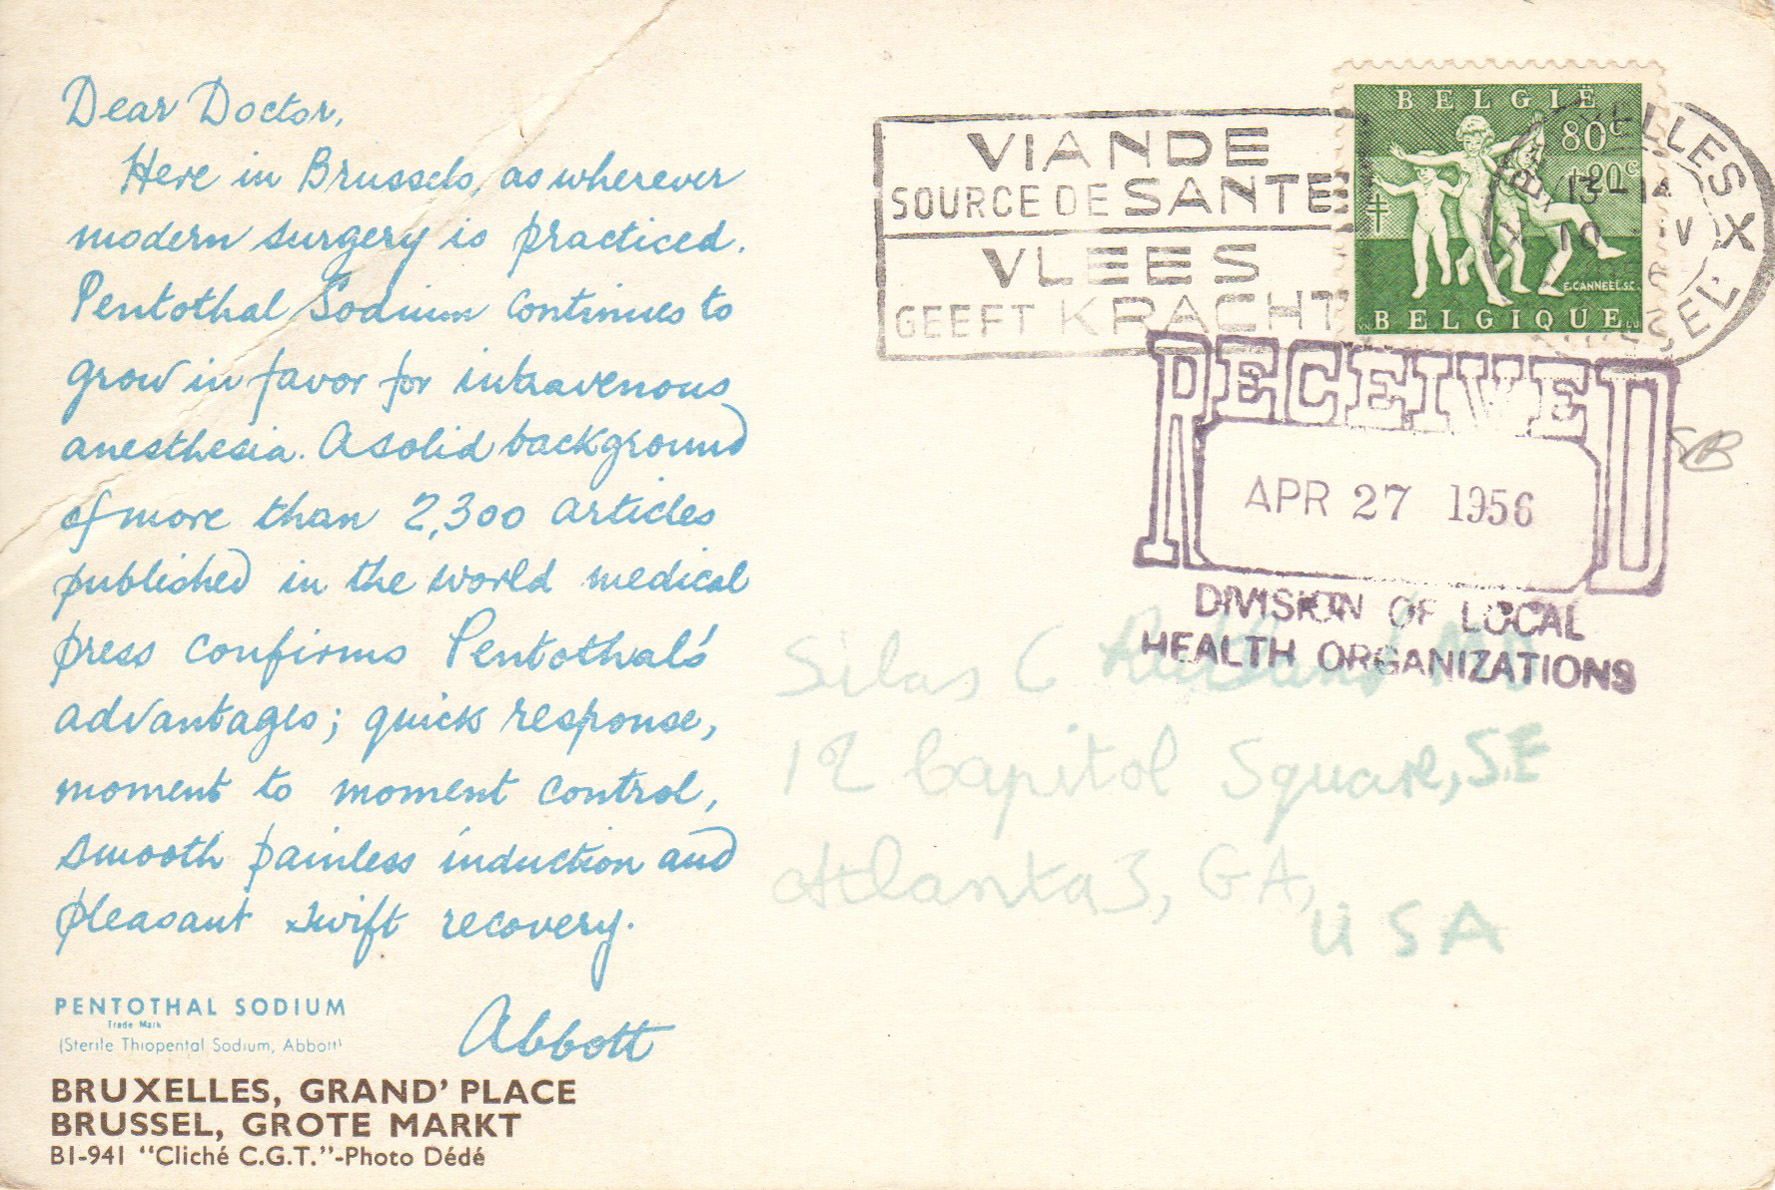 Dear Doctor,
Here in Brussels, as wherever
modern surgery is practiced.
Pentothal Sodium continues to
grow in favor for intravenous
anesthesia. A solid background
of more than 2,300 articles
published in the world medical
press confirms Pentothal's
advantages; quick response,
moment to moment control,
smooth painless induction and
pleasant swift recovery.
Abbott
PENTOTHAL SODIUM
Trade Mark
(Sterile Thiopental Sodium, Abbott)
BRUXELLES, GRAND' PLACE
BRUSSEL, GROTE MARKT
B1-941 "Cliché C.G.T."-Photo Dédé
VIANDE
SOURCE DE SANTE
VLEES
GEEFT KRACHT
BELGIË
80c
+20c
E.CANNEEL.SC.
BELGIQUE
13-14
10 IV
X
RECEIVED
APR 27 1956
DIVISION OF LOCAL
HEALTH ORGANIZATIONS
SB
Silas C
12 Capitol Square, S.E
Atlanta 3, GA,
USA